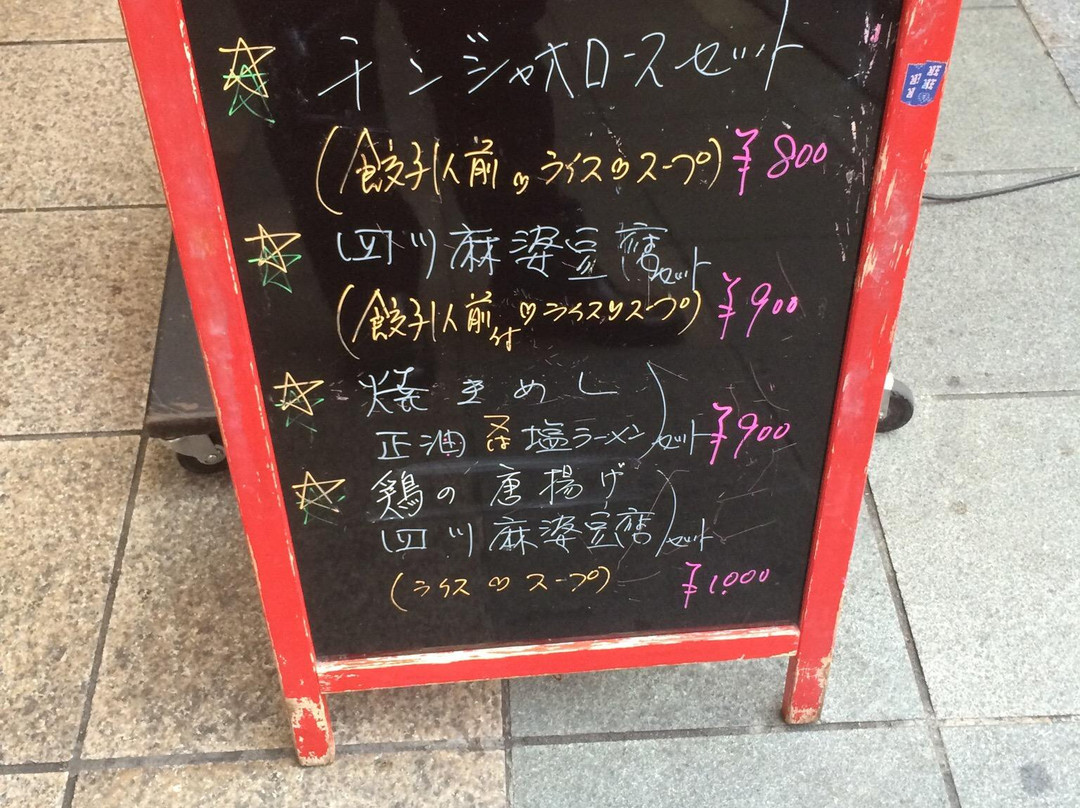 チンジャオロースセット
(餃子1人前♡ライス♡スープ) ¥800
四川麻婆豆腐セット
(餃子1人前付♡ライス♡スープ) ¥900
焼きめし
正油又は塩ラーメン セット ¥900
鶏の唐揚げ
四川麻婆豆腐 セット
(ライス♡スープ) ¥1,000